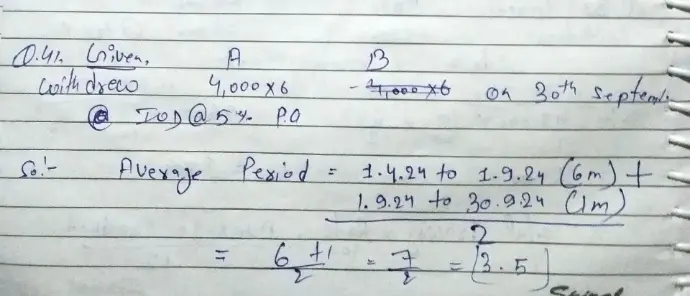 Q.41. Given, A B
withdrew 4,000×6 - 4,000×6 on 30th Septemb
@ IOD @ 5% P.a
So:- Average Period = 1.4.24 to 1.9.24 (6m) +
1.9.24 to 30.9.24 (1m)
2
= 6+1/2 = 7/2 = [3.5]